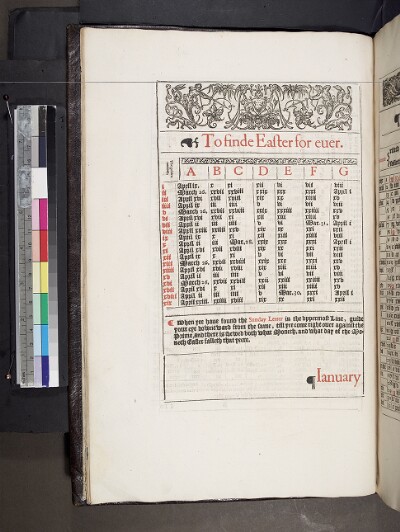 To finde Easter for euer.
A B C D E F G
i April ix. x xi xii vi vii viii
ii March 26. xxvii xxviii xxix xxx xxxi April i
iii April xvi xvii xviii xix xx xiiii xv
iiii April ix iii iiii v vi vii viii
v March 26. xxvii xxviii xxix xxiii xxiiii xxv
vi April xvi xvii xi xii xiii xiiii xv
vii April ii iii iiii v vi Mar. 31. April i
viii April xxiii xxiiii xviii xix xx xxi xxii
ix April ix x xi xii xiii xiiii viii
x April ii iii Mar. 28. xxix xxx xxxi April i
xi April xvi xvii xviii xix xx xxi xxii
xii April ix x xi v vi vii viii
xiii March 26. xxvii xxviii xxix xxx xxxi xxv
xiiii April xvi xvii xviii xix xiii xiiii xv
xv April ii iii iiii v vi vii viii
xvi March 26. xxvii xxviii xxii xxiii xxiiii xxv
xvii April xvi x xi xii xiii xiiii xv
xviii April ii iii iiii v Mar. 30. xxxi April i
xix April xxiii xxiiii xviii xix xx xxi xxii
¶ When yee haue found the Sunday Letter in the vppermost Line, guide
your eye downeward from the same, till yee come right ouer against the
Prime, and there is shewed both what Moneth, and what day of the Mo-
neth Easter falleth that yeere.
¶ Ianuary